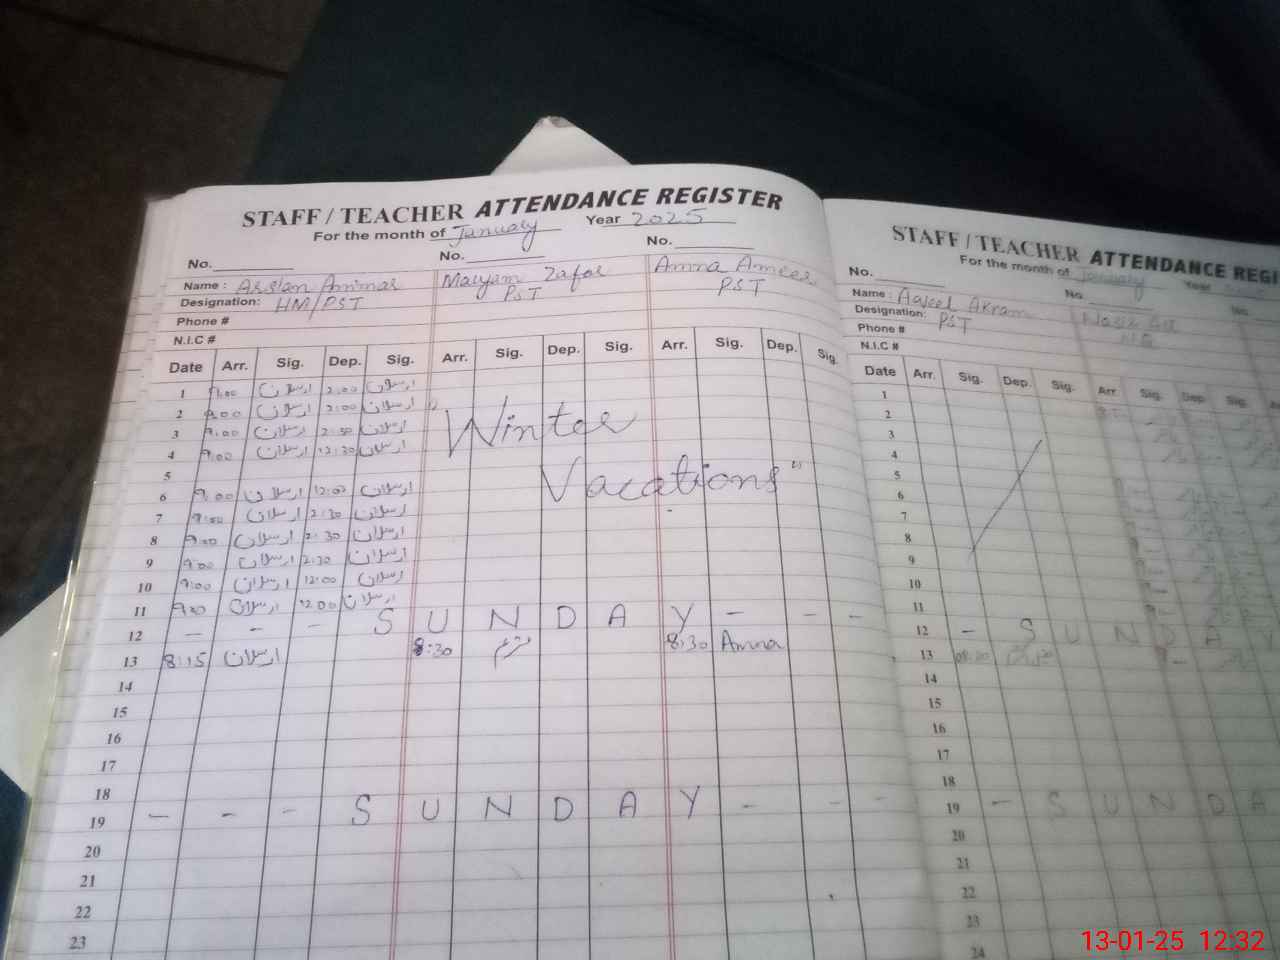 STAFF / TEACHER ATTENDANCE REGISTER
For the month of January Year 2025
No. No. No.
Name : Arslan Ammar Maryam Zafar Amna Ameer
Designation: HM/PST PST PST
Phone #
N.I.C #
Date Arr. Sig. Dep. Sig. Arr. Sig. Dep. Sig. Arr. Sig. Dep. Sig.
1 9:00 ارسلان 2:00 ارسلان
2 9:00 ارسلان 2:00 ارسلان
3 9:00 ارسلان 2:30 ارسلان
4 9:00 ارسلان 12:30 ارسلان
"Winter Vacations"
5
6 9:00 ارسلان 12:00 ارسلان
7 9:00 ارسلان 2:30 ارسلان
8 9:00 ارسلان 2:30 ارسلان
9 9:00 ارسلان 2:30 ارسلان
10 9:00 ارسلان 12:00 ارسلان
11 9:00 ارسلان 12:00 ارسلان
12 - - - S U N D A Y - - -
13 8:15 ارسلان 8:30 8:30 Amna
14
15
16
17
18
19 - - - S U N D A Y - - -
20
21
22
23
STAFF / TEACHER ATTENDANCE REGI
For the month of January Year
No. No. No.
Name : Aqeel Akram
Designation: PST
Phone #
N.I.C #
Date Arr. Sig. Dep. Sig. Arr. Sig. Dep. Sig. Arr.
1
2
3
4
5
6
7
8
9
10
11
12 - S U N D A Y
13
14
15
16
17
18
19 - S U N D A
20
21
22
23
24
13-01-25 12:32